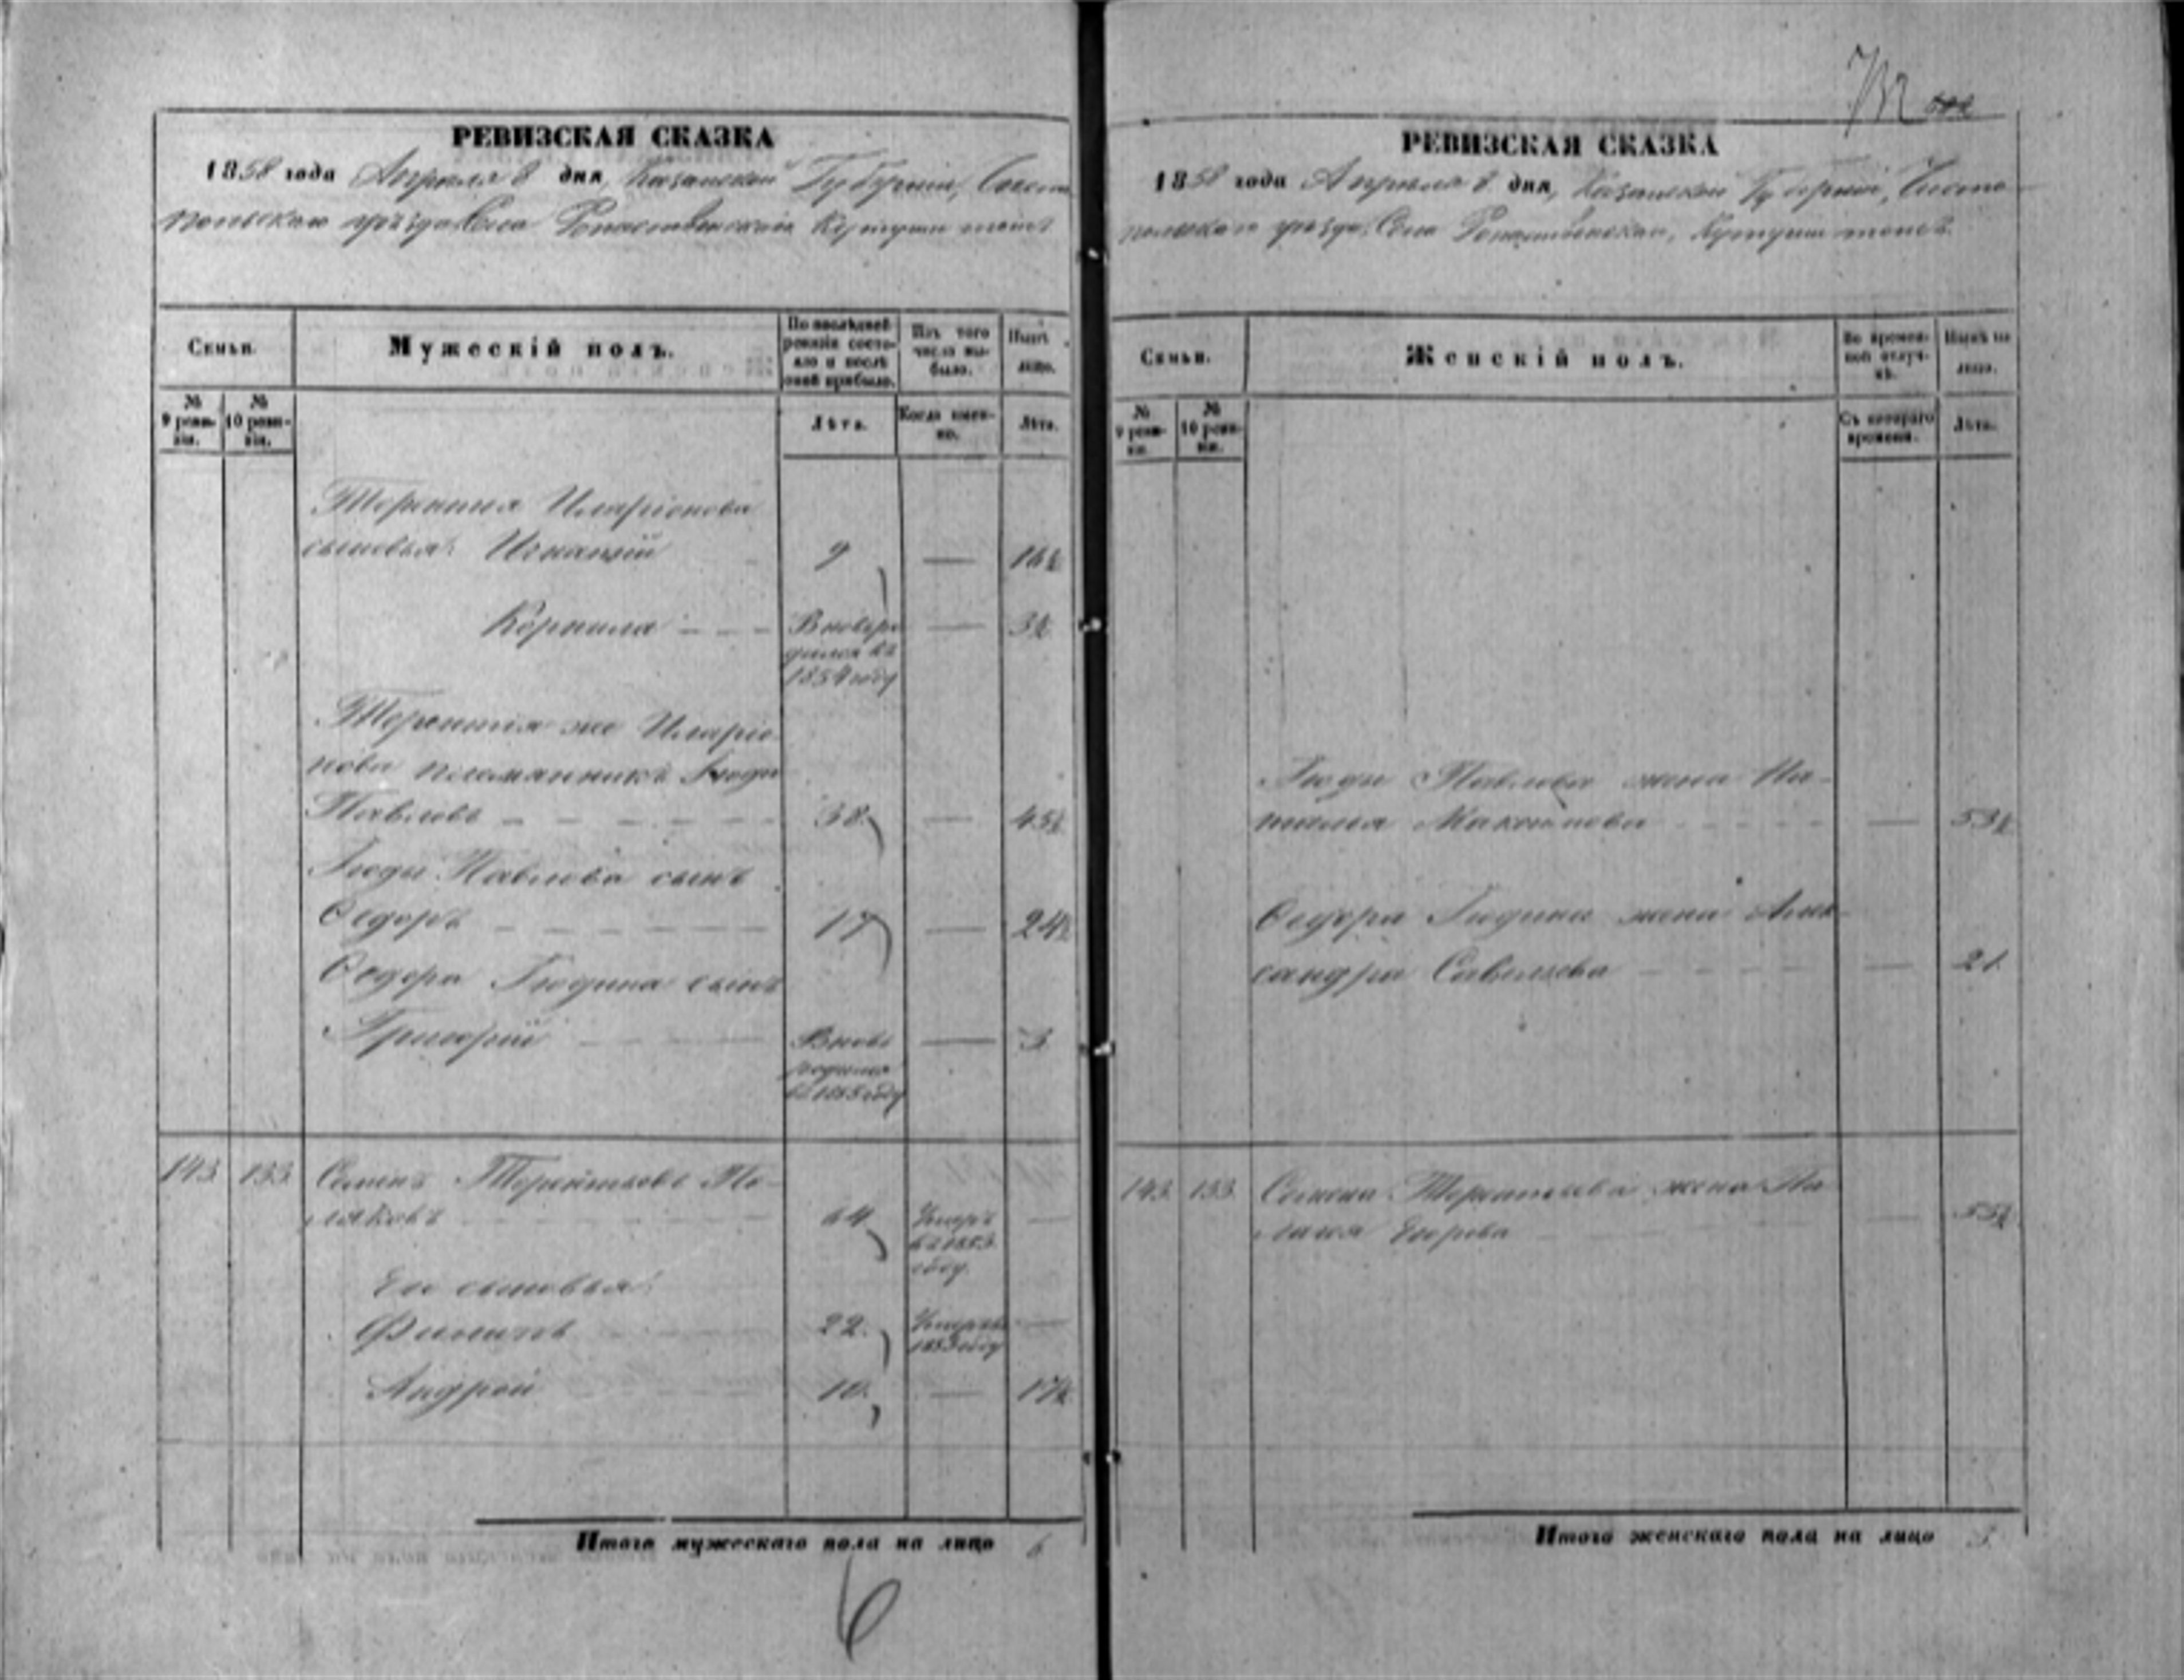 РЕВИЗСКАЯ СКАЗКА
1858 года Апреля 8 дня, Казанской Губернии, Чисто
польскаго уѣзда Села Рождественскаго Кутуши тожъ
Семьи.
Мужескій полъ.
По послѣдней ревизіи состояло и послѣ оной прибыло.
Изъ того числа выбыло.
Нынѣ на лицо.
№ 9 ревизіи.
№ 10 ревизіи.
Лѣта.
Когда именно.
Лѣта.
Терентия Иларіонова
сыновья: Игнатій 9 — 16½
Корнила - - - Вновь ро — 3½
дился въ
1854 году
Терентія же Иларіо
нова племянникъ
Павловъ - - - - - 38 — 45½
Павлова сынъ
Ѳедоръ - - - - - 17 — 24½
Ѳедора сынъ
Григорій - - - Вновь — 3
родился
въ 1855 году
143 133 Семенъ Терентьевъ По
ляковъ - - - - 64 Умеръ —
въ 1853
году.
Его сыновья:
Филипъ 22. Умеръ въ —
1853 году
Андрей 10. — 17½
Итого мужескаго пола на лицо 6
6
РЕВИЗСКАЯ СКАЗКА
1858 года Апреля 8 дня, Казанской Губерніи, Чисто
польскаго уѣзда Села Рождественскаго, Кутуши тожъ.
Семьи.
Женскій полъ.
Во временной отлучкѣ.
Нынѣ на лицо.
№ 9 ревизіи.
№ 10 ревизіи.
Съ котораго времени.
Лѣта.
Павлова жена На
талья Максимова - - - - — 53½
Ѳедора жена Алек
сандра Савельева - - - - — 21
143 133 Семена Терентьева жена Пе
лагея Егорова — 55½
Итого женскаго пола на лицо 3.